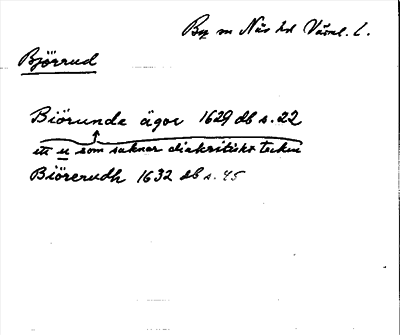 By m Näs hd Värml. l.
Björrud
Biörunde ägor 1629 db s. 22
ett u som saknar diakritiskt tecken
Biörerudh 1632 db s. 45